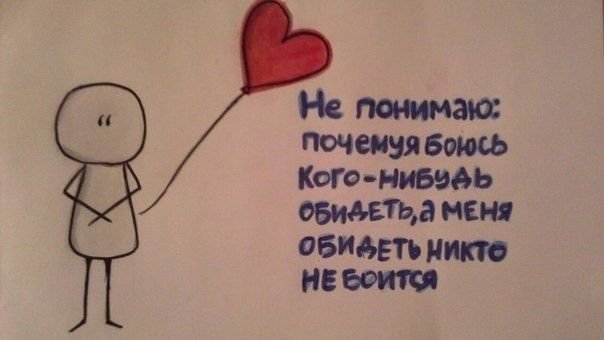 Не понимаю:
почемуя боюсь
кого-нибудь
обидеть, а меня
обидеть никто
не боится